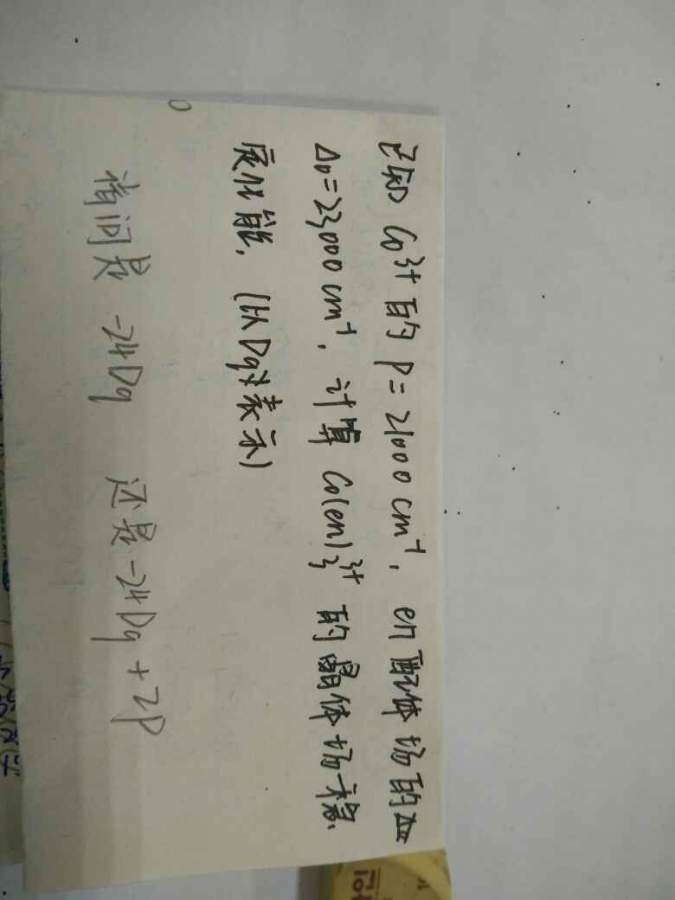 已知 Co³⁺ 的 P = 21000 cm⁻¹, en 配体场的
Δ₀ = 23000 cm⁻¹, 计算 Co(en)₃³⁺ 的晶体场稳
定化能. (以Dq来表示)
请问是 -24Dq 还是 -24Dq + 2P